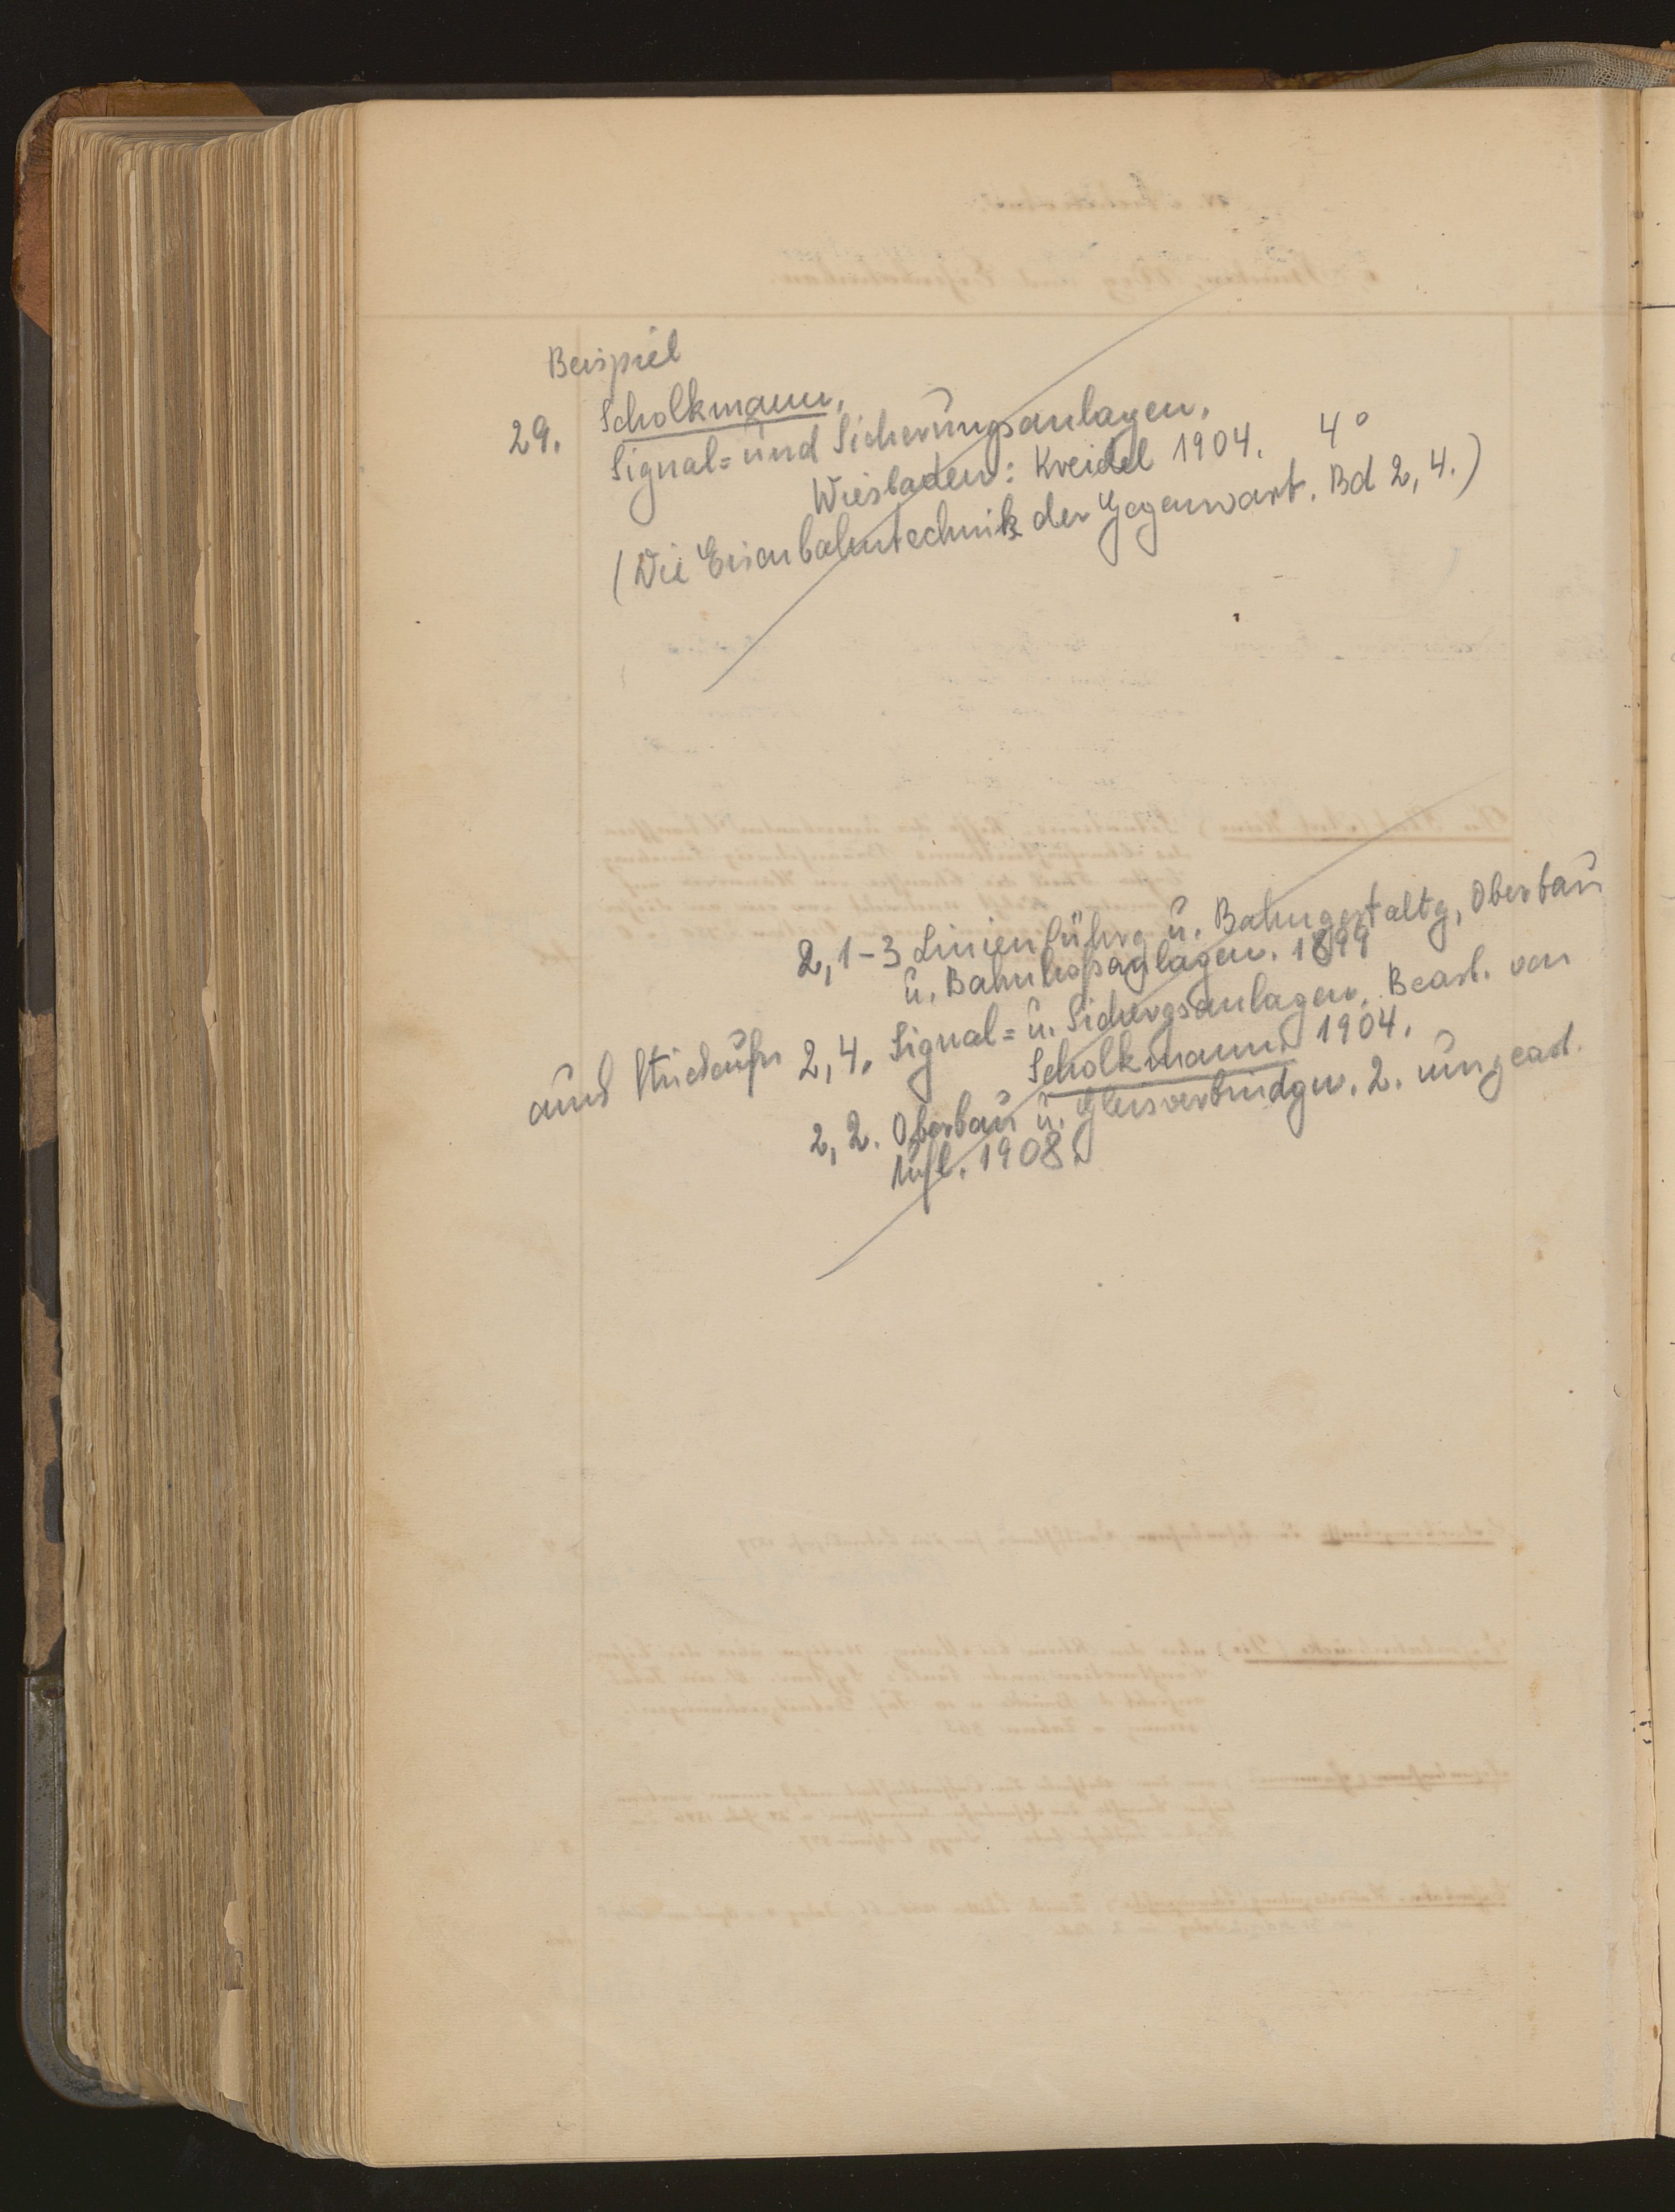 Beispiel
29. Scholkmann,
Signal= und Sicherungsanlagen.
Wiesbaden: Kreidel 1904. 4°
(Die Eisenbahntechnik der Gegenwart. Bd 2, 4.)
2, 1-3 Linienführg u. Bahngestaltg, Oberbau
u. Bahnhofsanlagen. 1899
2, 4. Signal= u. Sichergsanlagen. Bearb. von
Scholkmann. 1904.
2, 2. Oberbau u. Gleisverbindgn. 2. umgearb.
Aufl. 1908.